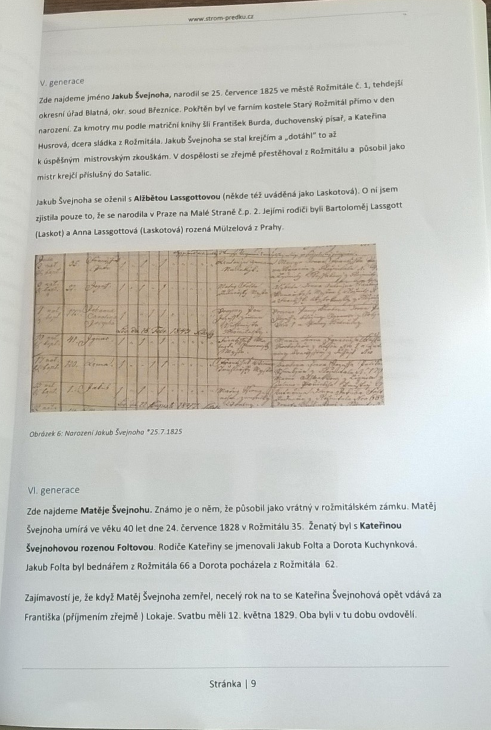 www.strom-predku.cz
V. generace
Zde najdeme jméno Jakub Švejnoha, narodil se 25. července 1825 ve městě Rožmitále č. 1, tehdejší
okresní úřad Blatná, okr. soud Březnice. Pokřtěn byl ve farním kostele Starý Rožmitál přímo v den
narození. Za kmotry mu podle matriční knihy šli František Burda, duchovenský písař, a Kateřina
Husrová, dcera sládka z Rožmitála. Jakub Švejnoha se stal krejčím a „dotáhl“ to až
k úspěšným mistrovským zkouškám. V dospělosti se zřejmě přestěhoval z Rožmitálu a působil jako
mistr krejčí příslušný do Satalic.
Jakub Švejnoha se oženil s Alžbětou Lassgottovou (někde též uváděná jako Laskotová). O ní jsem
zjistila pouze to, že se narodila v Praze na Malé Straně č.p. 2. Jejími rodiči byli Bartoloměj Lassgott
(Laskot) a Anna Lassgottová (Laskotová) rozená Mülzelová z Prahy.
Obrázek 6: Narození Jakub Švejnoha *25.7.1825
VI. generace
Zde najdeme Matěje Švejnohu. Známo je o něm, že působil jako vrátný v rožmitálském zámku. Matěj
Švejnoha umírá ve věku 40 let dne 24. července 1828 v Rožmitálu 35. Ženatý byl s Kateřinou
Švejnohovou rozenou Foltovou. Rodiče Kateřiny se jmenovali Jakub Folta a Dorota Kuchynková.
Jakub Folta byl bednářem z Rožmitála 66 a Dorota pocházela z Rožmitála 62.
Zajímavostí je, že když Matěj Švejnoha zemřel, necelý rok na to se Kateřina Švejnohová opět vdává za
Františka (příjmením zřejmě ) Lokaje. Svatbu měli 12. května 1829. Oba byli v tu dobu ovdovělí.
Stránka | 9